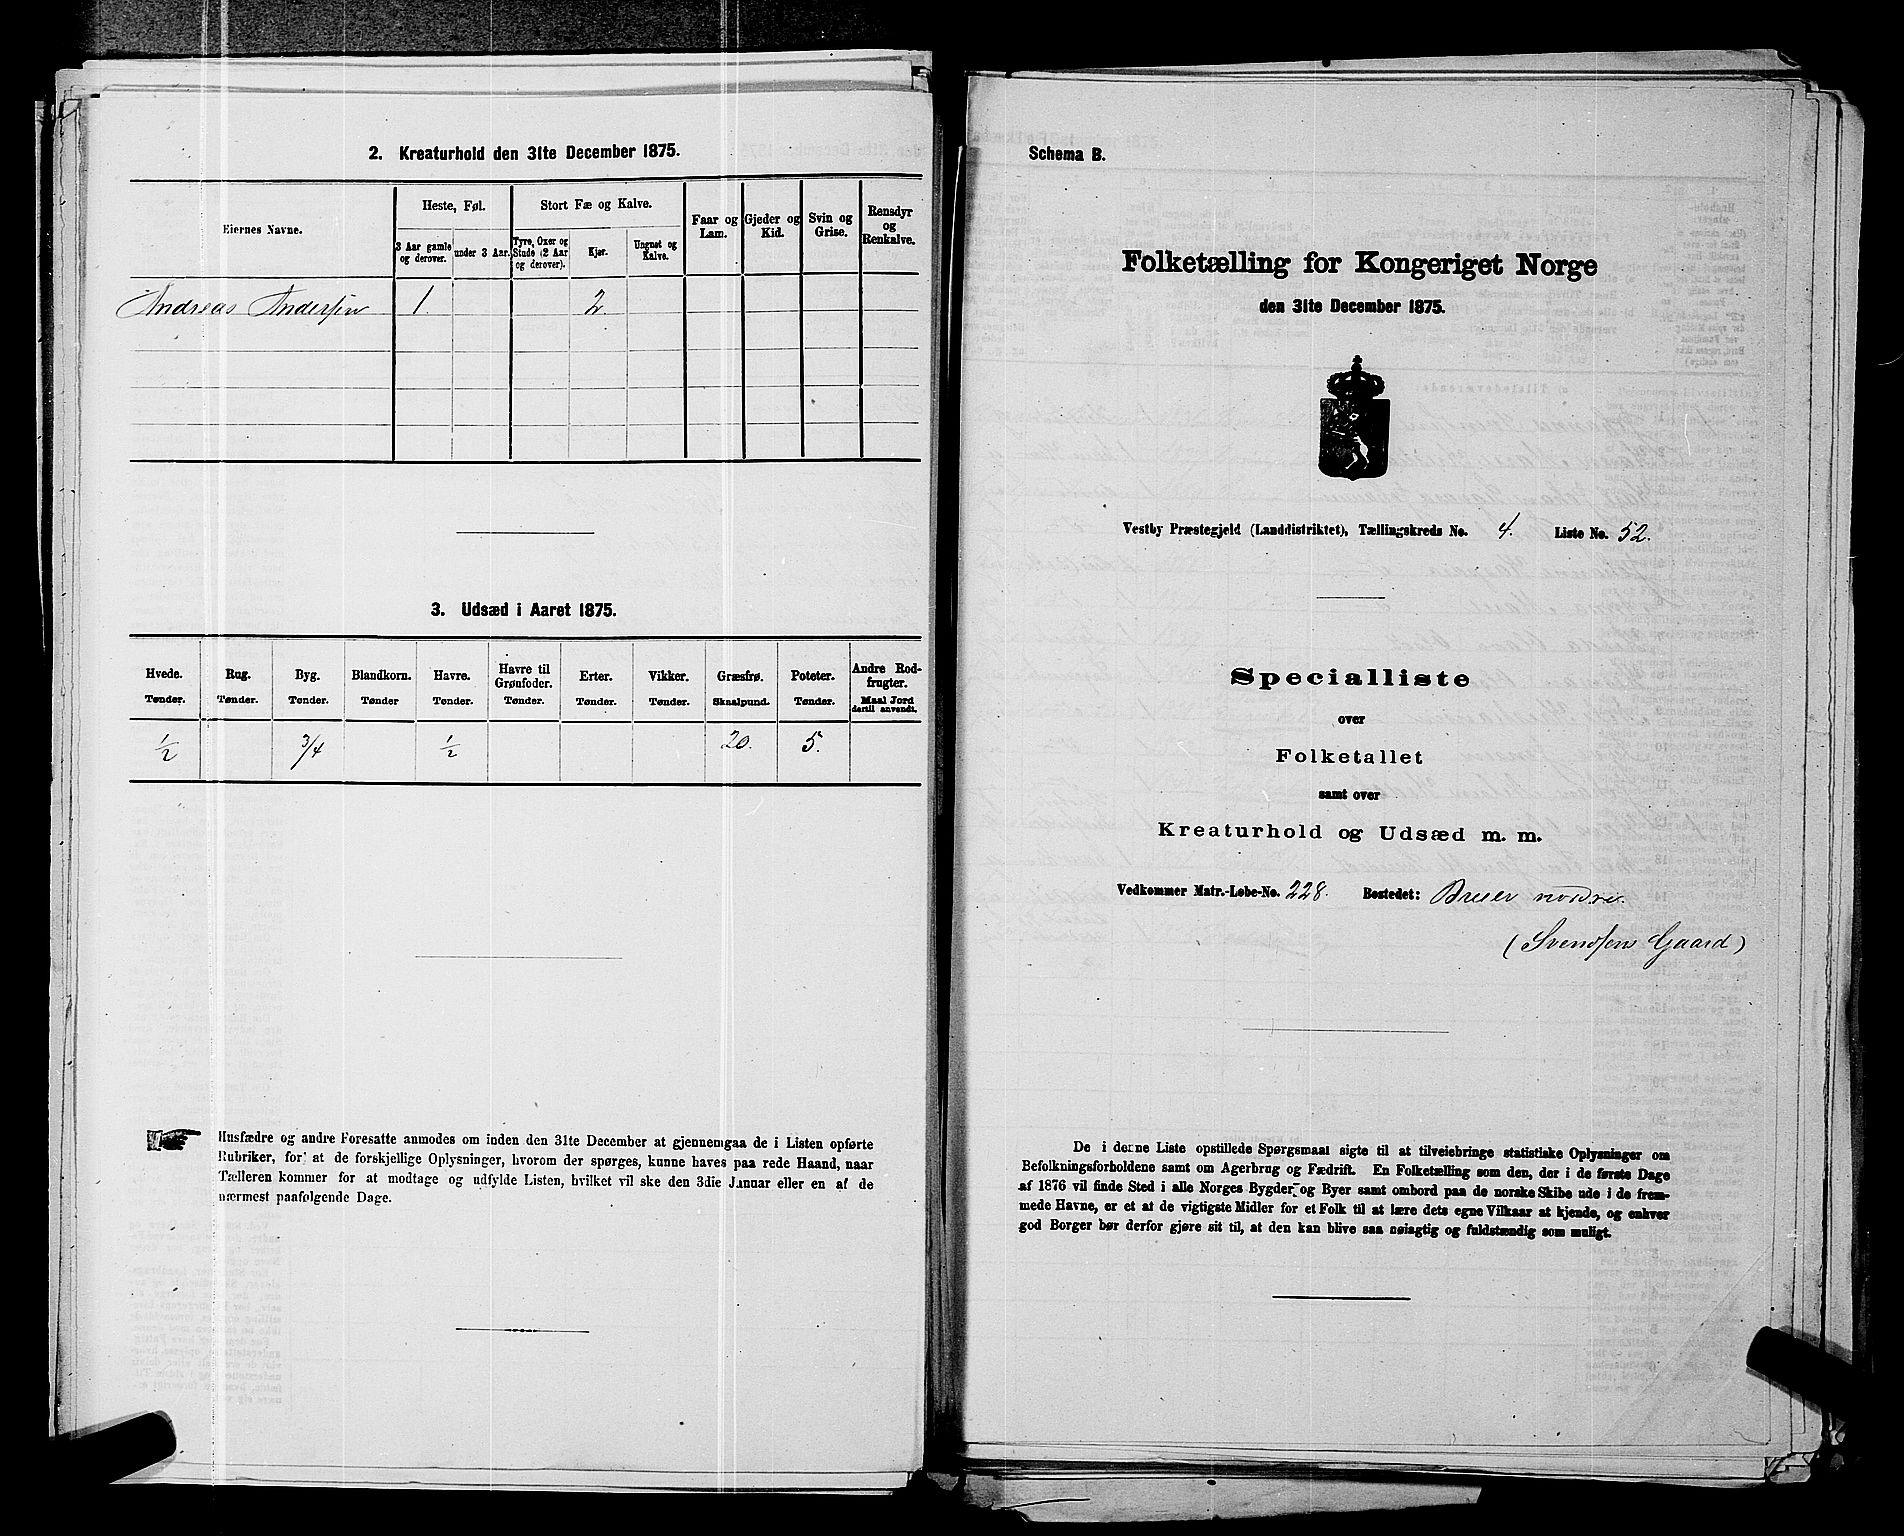 2. Kreaturhold den 31te December 1875.
Eiernes Navne.
Heste, Føl.
Stort Fæ og Kalve.
Faar og Lam.
Gjeder og Kid.
Svin og Grise.
Rensdyr og Renkalve.
3 Aar gamle og derover.
under 3 Aar.
Tyre, Oxer og Stude (2 Aar og derover).
Kjør.
Ungnøt og Kalve.
Andreas Andersen 1. 2.
3. Udsæd i Aaret 1875.
Hvede. Rug. Byg. Blandkorn. Havre. Havre til Grønfoder. Erter. Vikker. Græsfrø. Poteter. Andre Rodfrugter.
Tønder. Tønder. Tønder. Tønder Tønder. Tønder. Tønder. Tønder. Skaalpund. Tønder. Maal Jord dertil anvendt.
1/2 3/4 1/2 20. 5.
Husfædre og andre Foresatte anmodes om inden den 31te December at gjennemgaa de i Listen opførte
Rubriker, for at de forskjellige Oplysninger, hvorom der spørges, kunne haves paa rede Haand, naar
Tælleren kommer for at modtage og udfylde Listen, hvilket vil ske den 3die Januar eller en af de
nærmest paafølgende Dage.
Schema B.
Folketælling for Kongeriget Norge
den 31te December 1875.
Vestby Præstegjeld (Landdistriktet), Tællingskreds No. 4. Liste No. 52.
Specialliste
over
Folketallet
samt over
Kreaturhold og Udsæd m. m.
Vedkommer Matr.-Løbe-No. 228. Bostedet: nordre.
(Svendsen Gaard)
De i denne Liste opstillede Spørgsmaal sigte til at tilveiebringe statistiske Oplysninger om
Befolkningsforholdene samt om Agerbrug og Fædrift. En Folketælling som den, der i de første Dage
af 1876 vil finde Sted i alle Norges Bygder og Byer samt ombord paa de norske Skibe ude i de frem-
mede Havne, er et at de vigtigste Midler for et Folk til at lære dets egne Vilkaar at kjende, og enhver
god Borger bør derfor gjøre sit til, at den kan blive saa nøiagtig og fuldstændig som muligt.